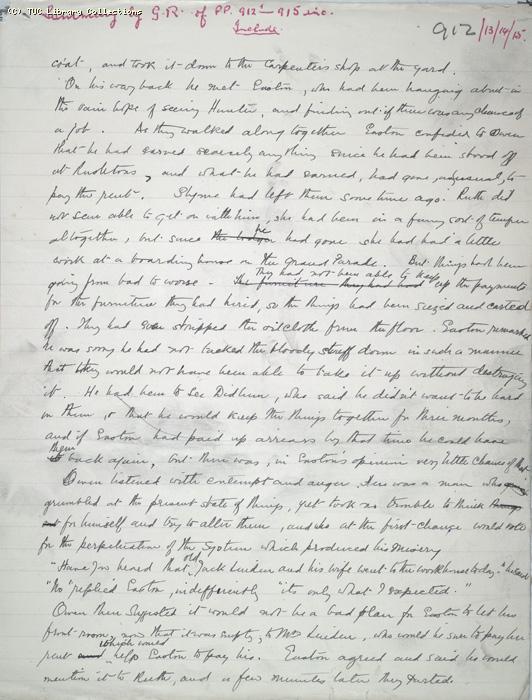 © TUC Library Collections
of G.R. of PP. 912 - 915 inc.
Include
912/13/14/15.
coat, and took it down to the carpenters shop at the yard.
On his way back he met Easton, who had been hanging about in
the vain hope of seeing Hunter, and finding out if there was any chance of
a job. As they walked along together Easton confided to Owen
that he had earned scarcely anything since he had been stood off
at Rushtons, and what he had earned, had gone, as usual, to
pay the rent. Slyme had left them some time ago. Ruth did
not seem able to get on with him, she had been in a funny sort of temper
altogether, but since the lodger he had gone she had had a little
work at a boarding house on the Grand Parade. But things had been
going from bad to worse. The furniture they had had They had not been able to keep up the payments
for the furniture they had hired, so the things had been seized and carted
off. They had even stripped the oilcloth from the floor. Easton remarked
he was sorry he had not tacked the bloody stuff down in such a manner
that they would not have been able to take it up without destroying
it. He had been to see Didlum, who said he didn't want to be hard
on them, & that he would keep the things together for three months,
and if Easton had paid up arrears by that time he could have
them back again, but there was, in Easton's opinion very little chance of that.
Owen listened with contempt and anger. Here was a man who
grumbled at the present state of things, yet took no trouble to think
for himself and try to alter them, and who at the first chance would vote
for the perpetuation of the System which produced his misery
"Have you heard that old Jack Linden and his wife went to the workhouse today." he said
"No" replied Easton, indifferently "its only what I expected."
Owen then suggested it would not be a bad plan for Easton to let his
front-room, now that it was empty, to Mrs Linden, who would be sure to pay her
rent and which would help Easton to pay his. Easton agreed and said he would
mention it to Ruth, and a few minutes later they parted.